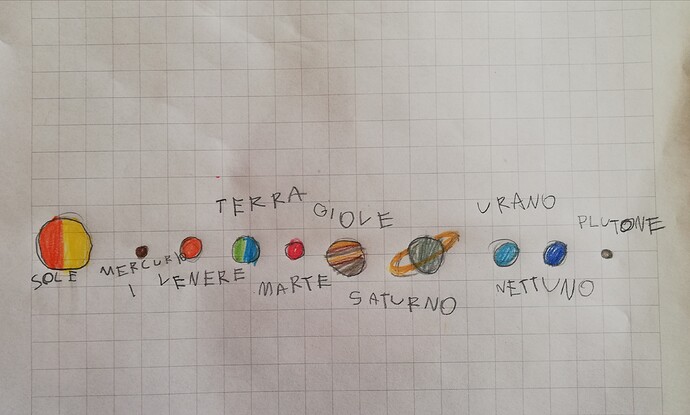 SOLE
MERCURIO
VENERE
TERRA
MARTE
GIOVE
SATURNO
URANO
NETTUNO
PLUTONE